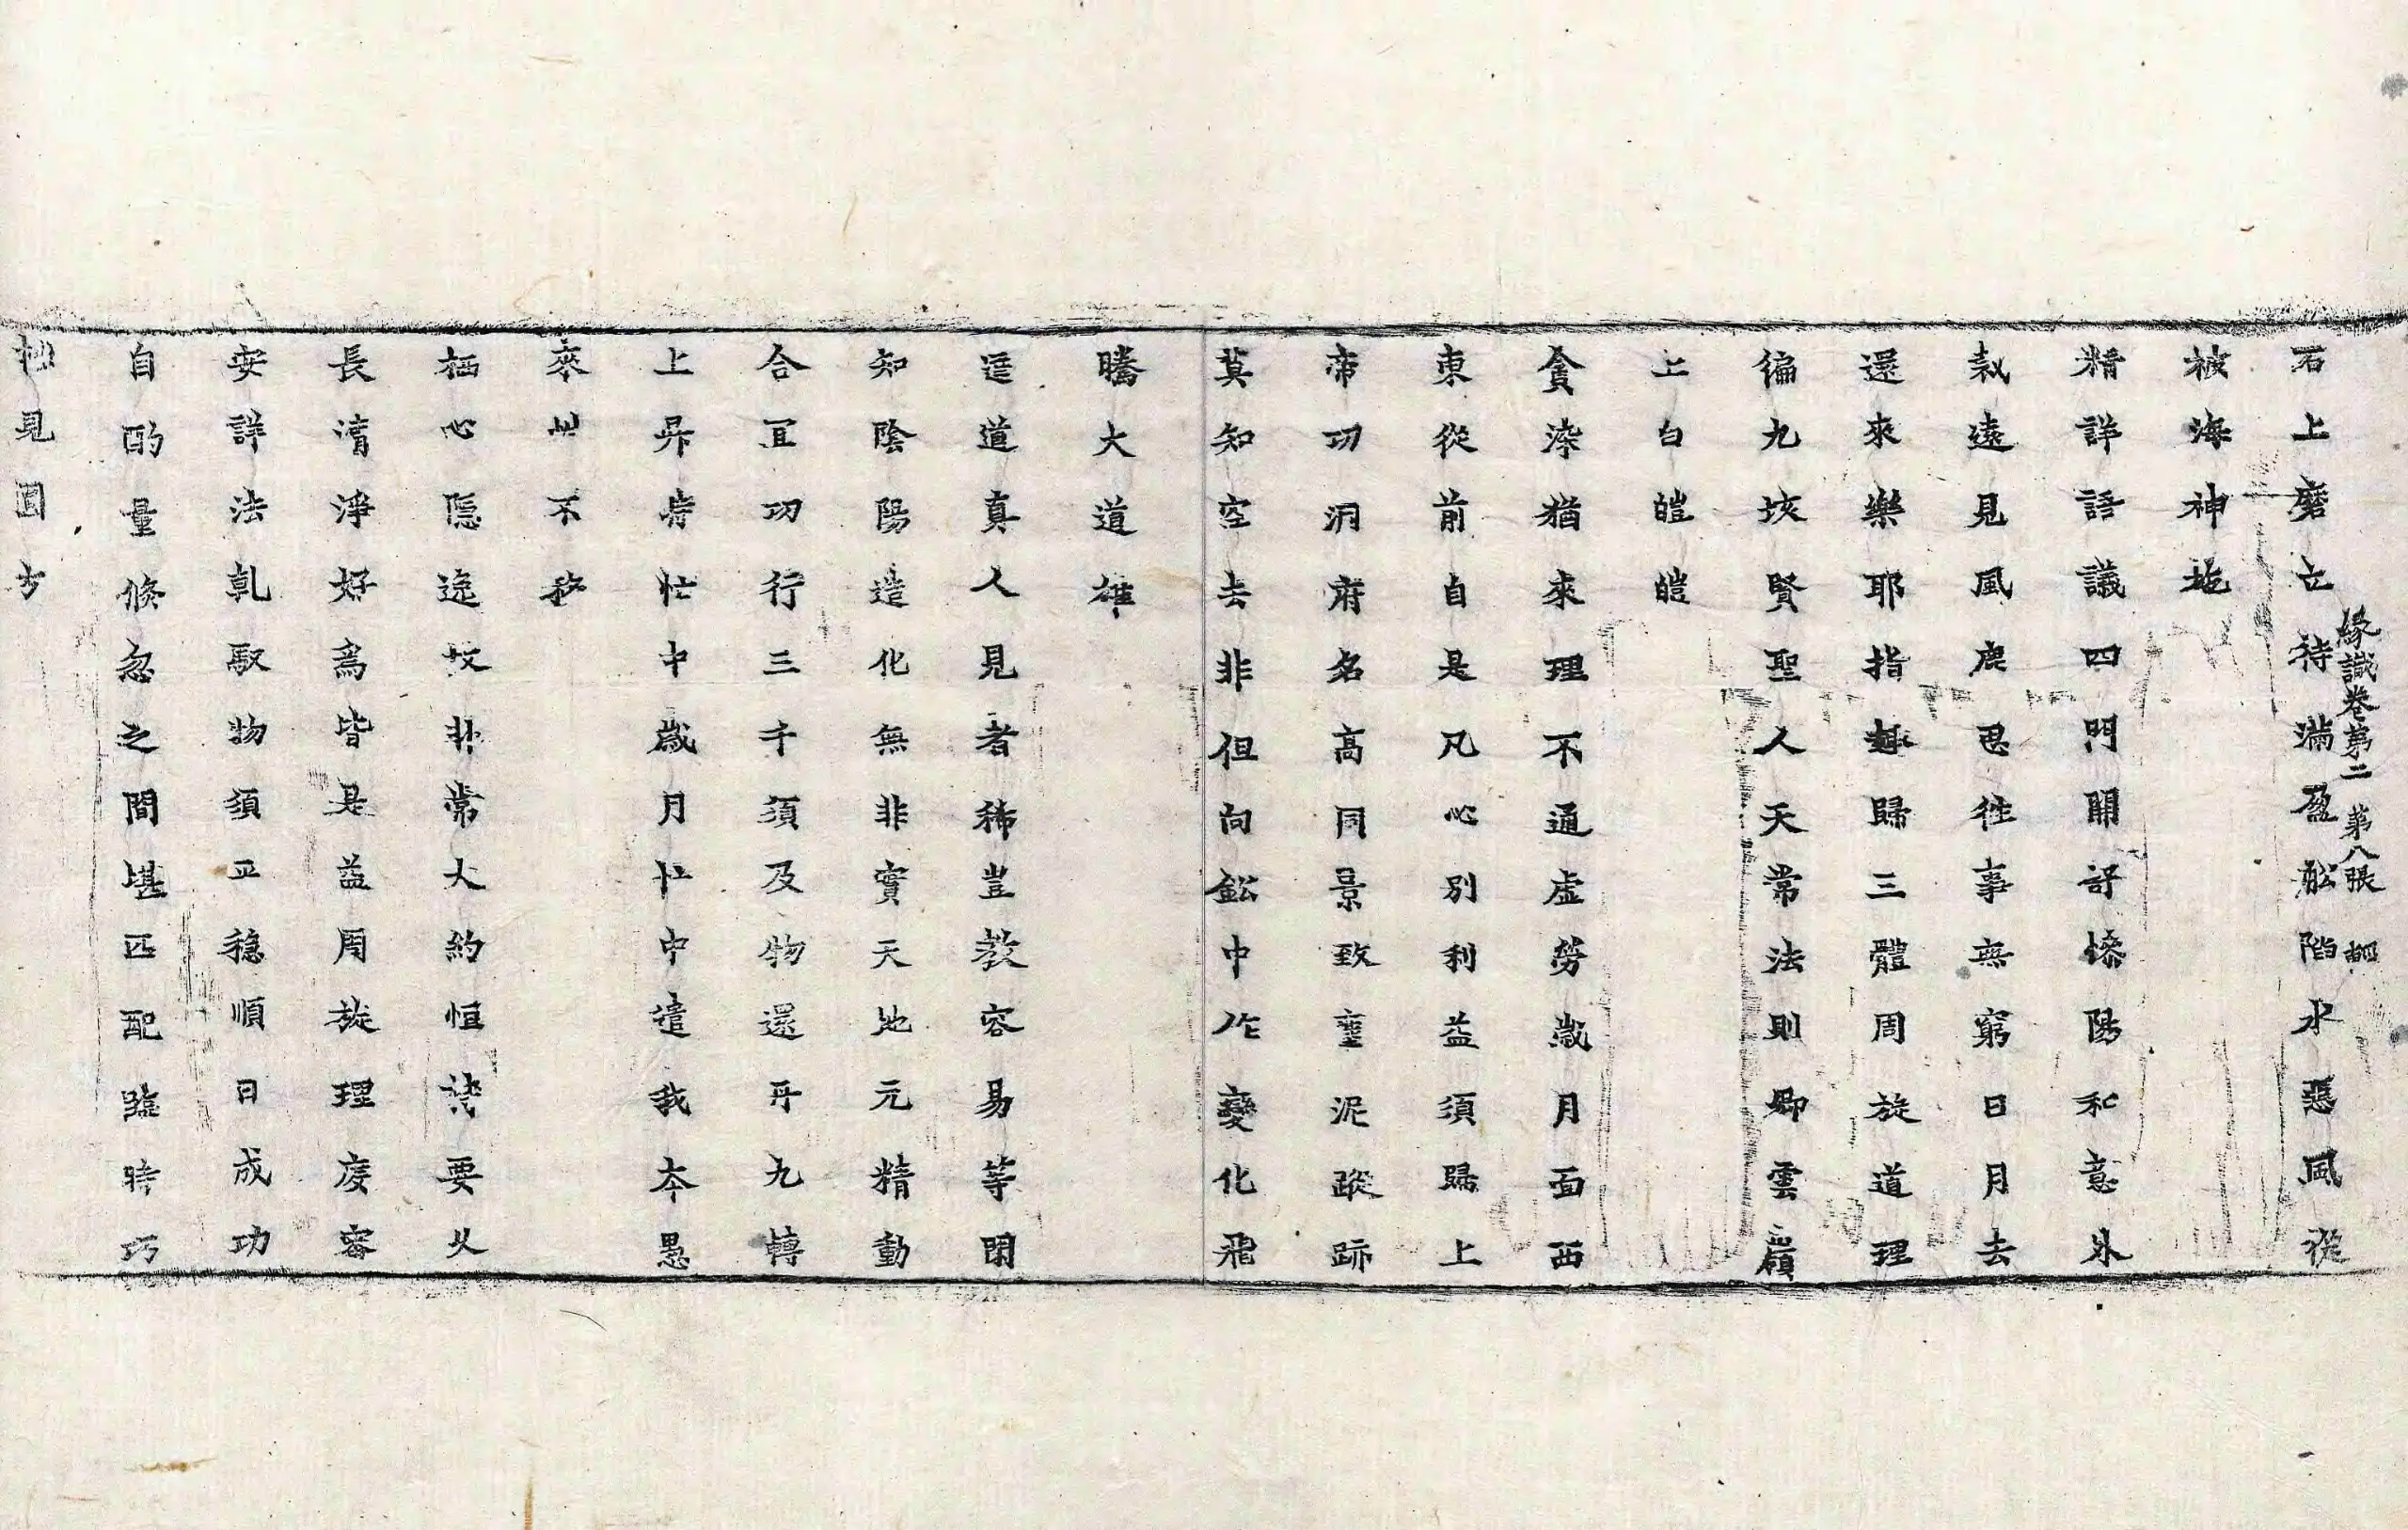 石上磨立待滿盈舩陷水惡風從
緣識卷第二 第八張
被海神拖
精詳語議四門開舒慘陽和意外
裁遠見風鹿思往事無窮日月去
還來樂耶指趣歸三體周旋道理
徧九垓賢聖人天常法則卿雲嶺
上白皚皚
貪染猶來理不通虛勞歲月面西
東從前自是凡心別利益須歸上
帝功洞府名高同景致塵泥蹤跡
莫知空去非但向鈆中作變化飛
騰大道雄
迋道真人見者稀豈教容易等閑
知陰陽造化無非實天地元精動
合宜功行三千須及物還丹九轉
上昇時忙中歲月忙中遣我本愚
來性不移
栖心隱逸好非常大約恒談要久
長清淨好爲皆是益周旋理度審
安詳法乹取物須平穩順日成功
自酌量倏忽之間堪匹配臨時巧
拙見圓方